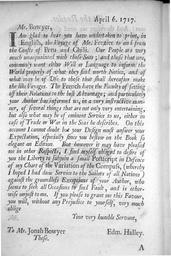 April 6. 1717.
Mr. Bowyer,
I Am glad to hear you have undertaken to print, in
English, the Voyage of Mr. Frezier to and from
the Coasts of Peru and Chili. Our People are very
much unacquainted with those Seas; and those that are,
commonly want either Will or Language to inform the
World properly of what they find worth Notice, and of
what may be of Use to those that shall hereafter make
the like Voyage. The French have the Faculty of setting
off their Relations to the best Advantage; and particularly
your Author has informed us, in a
of several things that are not only very entertaining,
but also what may be of eminent Service to us, either in
case of Trade or War in the Seas he describes. On this
account I cannot doubt but your Design must answer your
Expectation, especially since you bestow on the Book so
elegant an Edition. But however it may have pleased
me in other Respects, I find myself obliged to desire of
you the Liberty to subjoin a small Postscript in Defence
of my Chart of the Variation of the Compass, (whereby
I hoped I had done Service to the Sailors of all Nations)
against the groundless Exceptions of your Author, who
seems to seek all Occasions to find Fault, and is other-
wise unjust to me. If you please to grant me this Favour,
you will, without any Prejudice to yourself, very much
oblige
Your very humble Servant,
To Mr. Jonah Bowyer
These.
Edm. Halley.
A